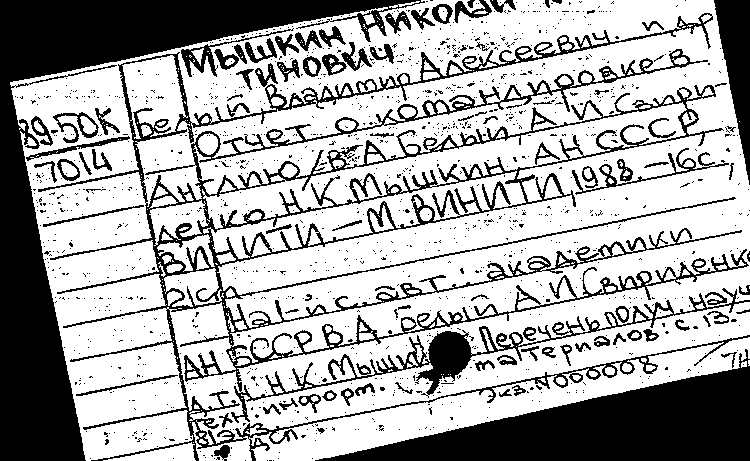 Мышкин, Николай
тинович
89-50К
7014
Белый, Владимир Алексеевич. и др
Отчет о командировке в
Англию / В. А. Белый, А. И. Свири
денко, Н. К. Мышкин; АН СССР,
ВИНИТИ. — М.: ВИНИТИ, 1988. — 16 с.;
21 см
На 1-й с. авт.: академики
АН БССР В. А. Белый, А. И. Свириденко
д.т.н. Н. К. Мышкин Перечень получ. науч
техн. информ. материалов: с. 13. —
81 экз. Экз. N 000008.
дсп.